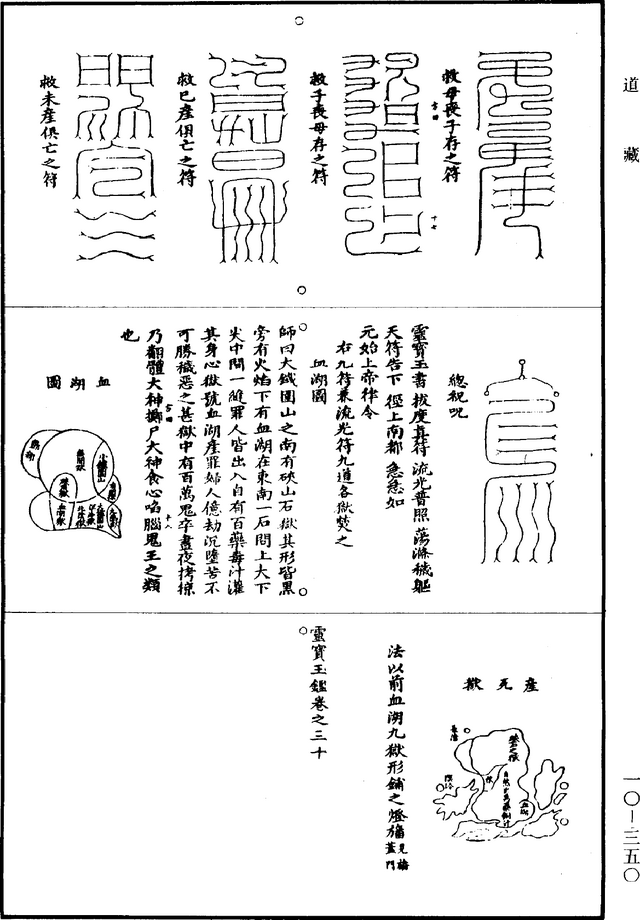 道藏
救母喪子存之符
救子喪母存之符
十七
救已產俱亡之符
救未產俱亡之符
總祝呪
靈寶玉書拔度真符流光普照蕩滌穢軀
天符告下徑上南都急急如
元始上帝律令
右九符兼流光符九道各獄焚之
血湖圖
師曰大鐵圍山之南有硤山石獄其形皆黑
旁有火焰下有血湖在東南一石門上大下
尖中間一縫罪人皆出入自有百藥毒汁灌
其身心獄號血湖產罪婦人億劫沉墮苦不
可勝穢惡之甚獄中有百萬鬼卒晝夜拷掠
乃翻體大神擲尸大神食心啗腦鬼王之類
也
十八
血湖圖
無間獄
小鐵圍山
產死獄
血湖
法以前血湖九獄形鋪之燈旛見旛蓋門
靈寶玉鑑卷之三十
一〇—三五〇